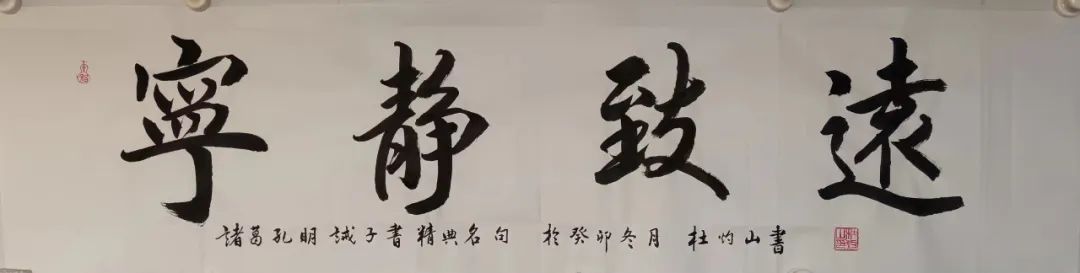 寧靜致遠
諸葛孔明誡子書精典名句 於癸卯冬月 杜灼山書